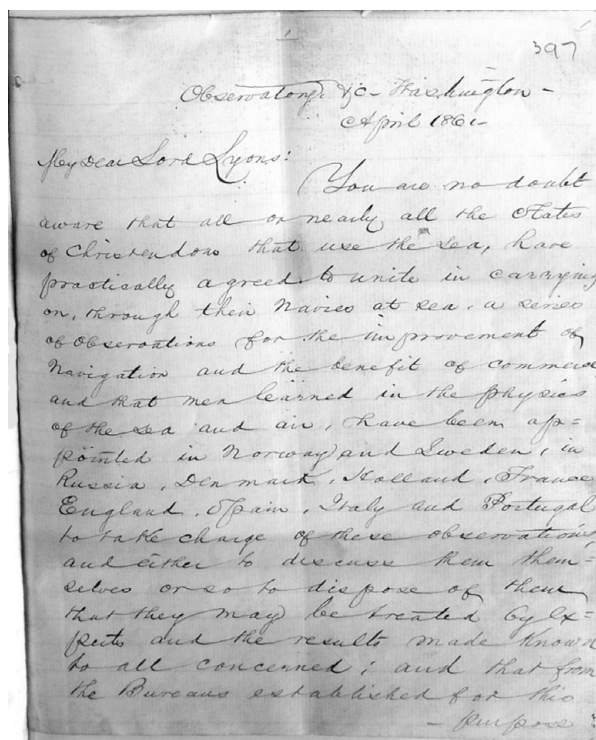 397
Observatory &c - Washington -
April 1861-
My Dear Lord Lyons:
You are no doubt
aware that all or nearly all the States
of Christendom that use the sea, have
practically agreed to unite in carrying
on, through their Navies at sea, a series
of observations for the improvement of
Navigation and the benefit of commerce
and that men learned in the physics
of the sea and air, have been ap=
pointed in Norway and Sweden, in
Russia, Denmark, Holland, France
England, Spain, Italy and Portugal
to take charge of these observations,
and either to discuss them them=
selves or so to dispose of them
that they may be treated by Ex=
perts and the results made known
to all concerned; and that from
the Bureaus established for this
- purpose :